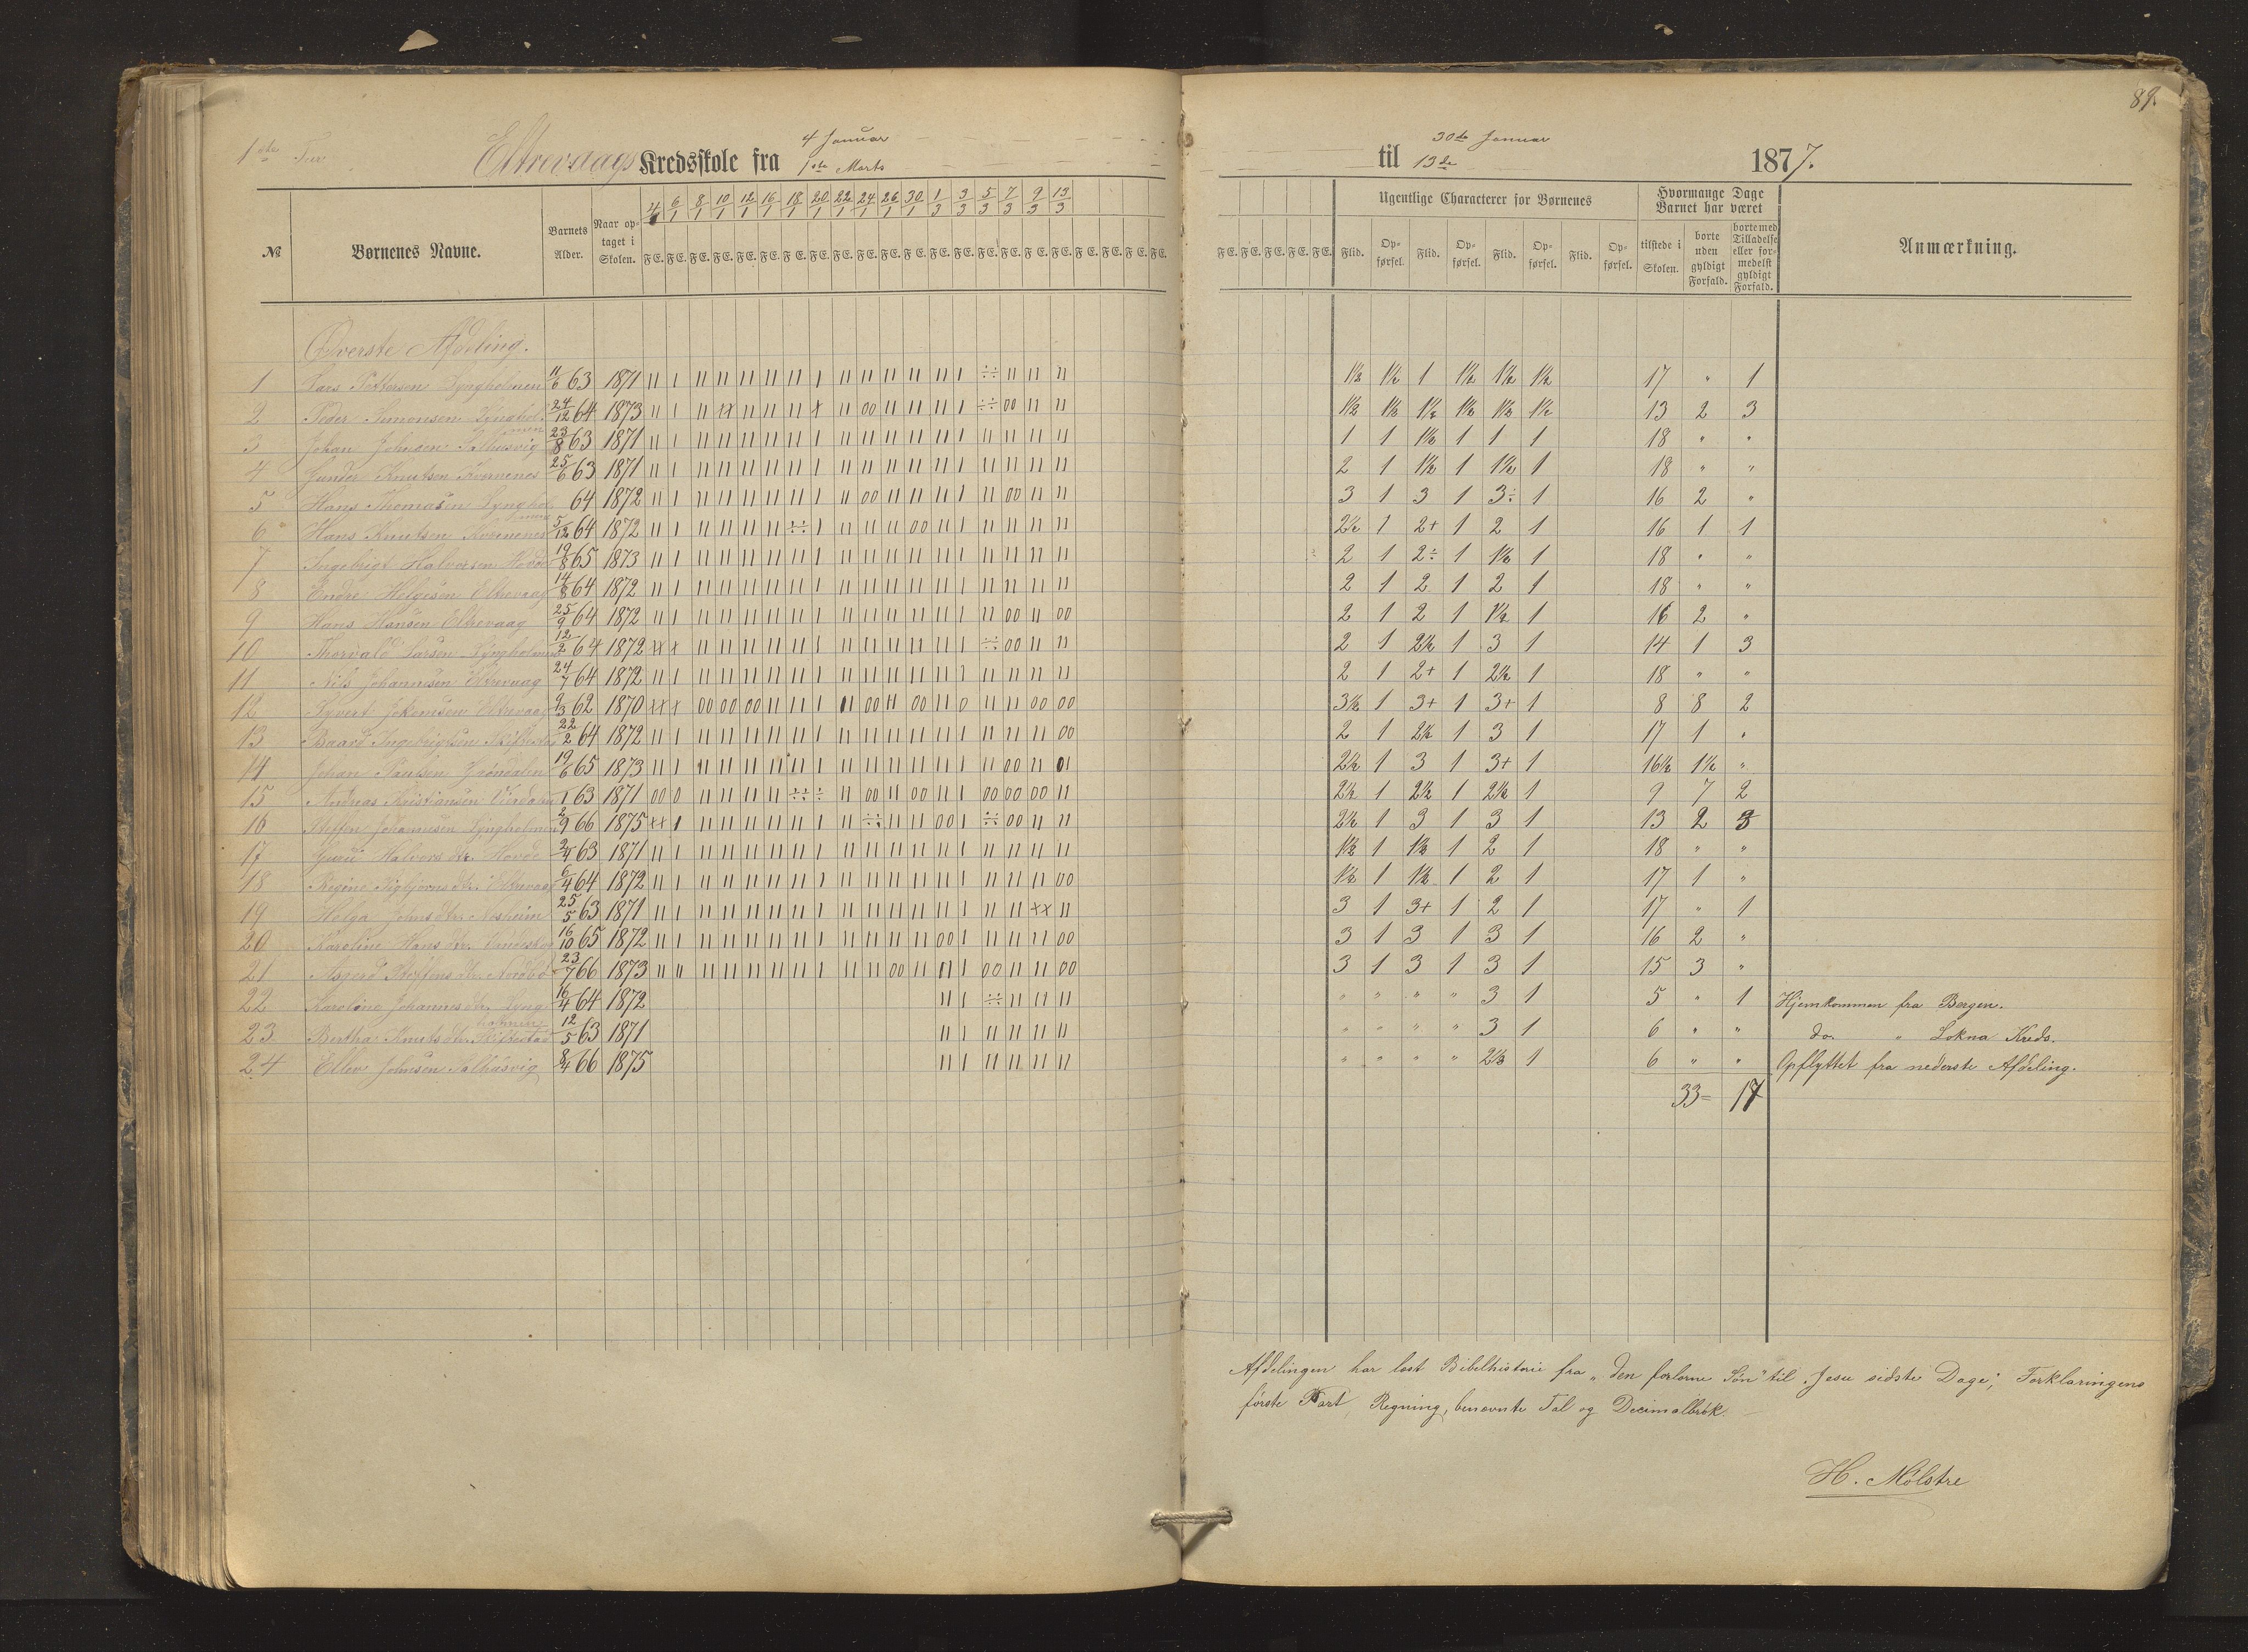 89.
1ste Tur
Eltrevaags Kredsskole fra 4 Januar
1ste Marts
til 30te Januar
13de
1877.
№ Børnenes Navne. Barnets Alder. Naar optaget i Skolen. 4/1 6/1 8/1 10/1 12/1 16/1 18/1 20/1 22/1 24/1 26/1 30/1 1/3 3/3 5/3 7/3 9/3 13/3
F.E. F.E. F.E. F.E. F.E. F.E. F.E. F.E. F.E. F.E. F.E. F.E. F.E. F.E. F.E. F.E. F.E. F.E. F.E. F.E. F.E. F.E.
F.E. F.E. F.E. F.E. F.E.
Ugentlige Characterer for Børnenes
Flid. Opførsel. Flid. Opførsel. Flid. Opførsel. Flid. Opførsel.
Hvormange Dage Barnet har været
tilstede i Skolen. borte uden gyldigt Forfald. borte med Tilladelse eller formedelst gyldigt Forfald.
Anmærkning.
Øverste Afdeling.
1 Lars Pettersen Lyngholmen 11/6 63 1871 1½ 1½ 1 1½ 1½ 1½ 17 " 1
2 Peder Simonsen Lyngholmen 24/12 64 1873 1½ 1½ 1½ 1½ 1½ 1½ 13 2 3
3 Johan Johnsen Salhusvig 23/8 63 1871 1 1 1½ 1 1 1 18 " "
4 Gunder Knutsen Kvernenes 25/6 63 1871 2 1 1½ 1 1½ 1 18 " "
5 Hans Thomasen Lyngholmen 64 1872 3 1 3 1 3÷ 1 16 2 "
6 Hans Knutsen Kvernenes 5/12 64 1872 2½ 1 2+ 1 2 1 16 1 1
7 Ingebrigt Halvorsen Hovde 19/8 65 1873 2 1 2÷ 1 1½ 1 18 " "
8 Endre Helgesen Eltrevaag 14/8 64 1872 2 1 2 1 2 1 18 " "
9 Hans Hansen Eltrevaag 25/9 64 1872 2 1 2 1 1½ 1 16 2 "
10 Thorvald Larsen Lyngholmen 12/2 64 1872 2 1 2½ 1 3 1 14 1 3
11 Nils Johannesen Eltrevaag 24/7 64 1872 2 1 2+ 1 2½ 1 18 " "
12 Syvert Eltrevaag 9/3 62 1870 3½ 1 3+ 1 3+ 1 8 8 2
13 Baard Ingebrigtsen 22/2 64 1872 2 1 2½ 1 3 1 17 1 "
14 Johan Paulsen Grøndalen 19/6 65 1873 2½ 1 3 1 3+ 1 16½ 1½ "
15 Andreas Kristiansen 1 63 1871 2½ 1 2½ 1 2½ 1 9 7 2
16 Steffen Johannesen Lyngholmen 2/9 66 1875 2½ 1 3 1 3 1 13 2 3
17 Guri Halvorsdtr. Hovde 2/4 63 1871 1½ 1 1½ 1 2 1 18 " "
18 Regine Sigbjørnsdtr. Eltrevaag 6/4 64 1872 1½ 1 1½ 1 2 1 17 1 "
19 Helga Johnsdtr. Nesheim 25/5 63 1871 3 1 3+ 1 2 1 17 " 1
20 Karoline Hansdtr. 16/10 65 1872 3 1 3 1 3 1 16 2 "
21 Steffensdtr. 23/7 66 1873 3 1 3 1 3 1 15 3 "
22 Karoline Johannesdtr. Lyngholmen 16/4 64 1872 " " " " 3 1 5 " 1 Hjemkommen fra Bergen.
23 Bertha Knutsdtr. 12/5 63 1871 " " " " 3 1 6 " " do. " Lokna Kreds.
24 Ellev Johnsen Salhusvig 8/4 66 1875 " " " " 2½ 1 6 " " Opflyttet fra nederste Afdeling.
33= 17
Afdelingen har læst Bibelhistorie fra „den forlorne Søn" til „Jesu sidste Dage", Forklaringens
første Part, Regning, benævnte Tal og Decimalbrøk.
H. Mølstre